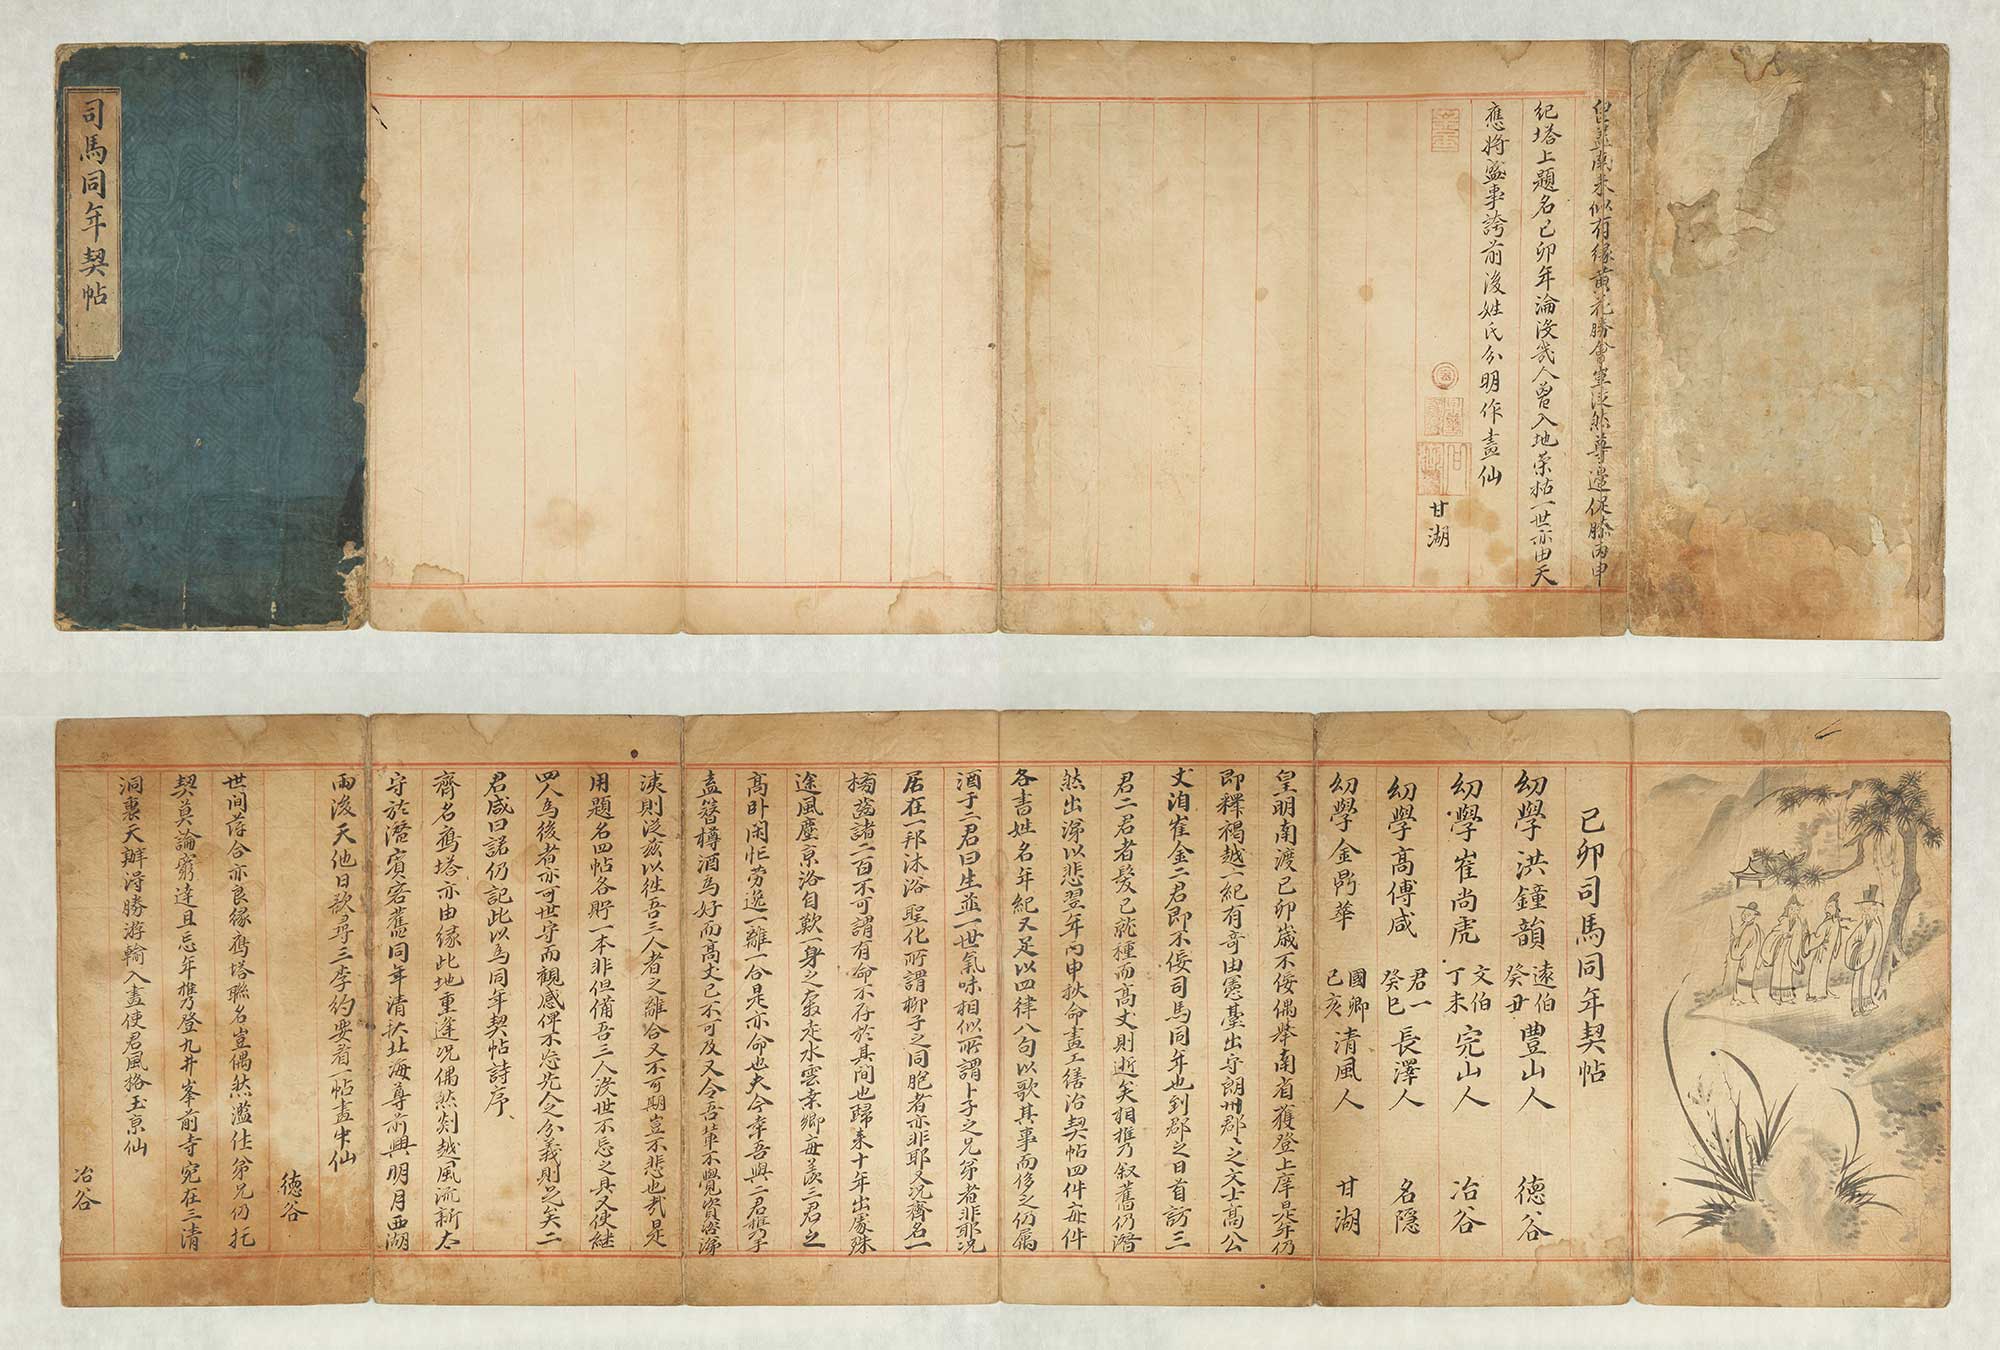 司馬同年契帖
己卯司馬同年契帖
幼學洪鐘韻 遠伯 癸丑 豊山人 德谷
幼學崔尚虎 文伯 丁未 完山人 冶谷
幼學高傅咸 君一 癸巳 長澤人 名隱
幼學金鼎華 國卿 己亥 清風人 甘湖
皇明南渡己卯歲不佞偶舉南省獲登上庠是年仍
即釋褐越一紀有奇由憲臺出守朗州郡〻之文士高公
丈洎崔金二君即不佞司馬同年也到郡之日首訪三
君二君者髮已就種而高丈則逝矣相携乃叙舊仍潸
然出涕以悲翌年丙申扙命畫工繕治契帖四件每件
各書姓名年紀又足以四律八句以歌其事而侈之仍屬
酒于二君曰生並一世氣味相似所謂卜子之兄弟者非耶況
居在一邦沐浴聖化所謂柳子之同胞者亦非耶又況齊名一
榜盖諸二百不可謂有命不存於其間也歸来十年出處殊
途風塵京洛自歎一身之奔走水雲桒鄉每羨三君之
高卧闲忙劳逸一離一合是亦命也夫今幸吾與二君携手
盍簪樽酒為好而高丈已不可及又令吾輩不覺資咨涕
洟則泛兹以徃吾三人者之離合又不可期豈不悲也㢤是
用題名四帖各貯一本非但備吾三人沒世不忘之具又使継
四人為後者亦可世守而觀感俾不忘先人之分義則足矣二
君咸曰諾仍記此以為同年契帖詩序
齊名鴈塔亦由緣此地重逢况偶然剡越風流新太
守於潛賓客舊同年清秋北海尊前興明月西湖
雨後天他日欲尋三李約要看一帖畫中仙
德谷
世间萍合亦良緣鴈塔聯名豈偶然濫仕弟兄仍托
契莫論窮達且忘年携乃登九井峯前寺宛在三清
洞裏天辦得勝游輸入畫使君風格玉京仙
冶谷
紀塔上題名己卯年淪沒幾人曾入地荣枯一世亦由天
應將盛事誇前後姓氏分明作畫仙
甘湖